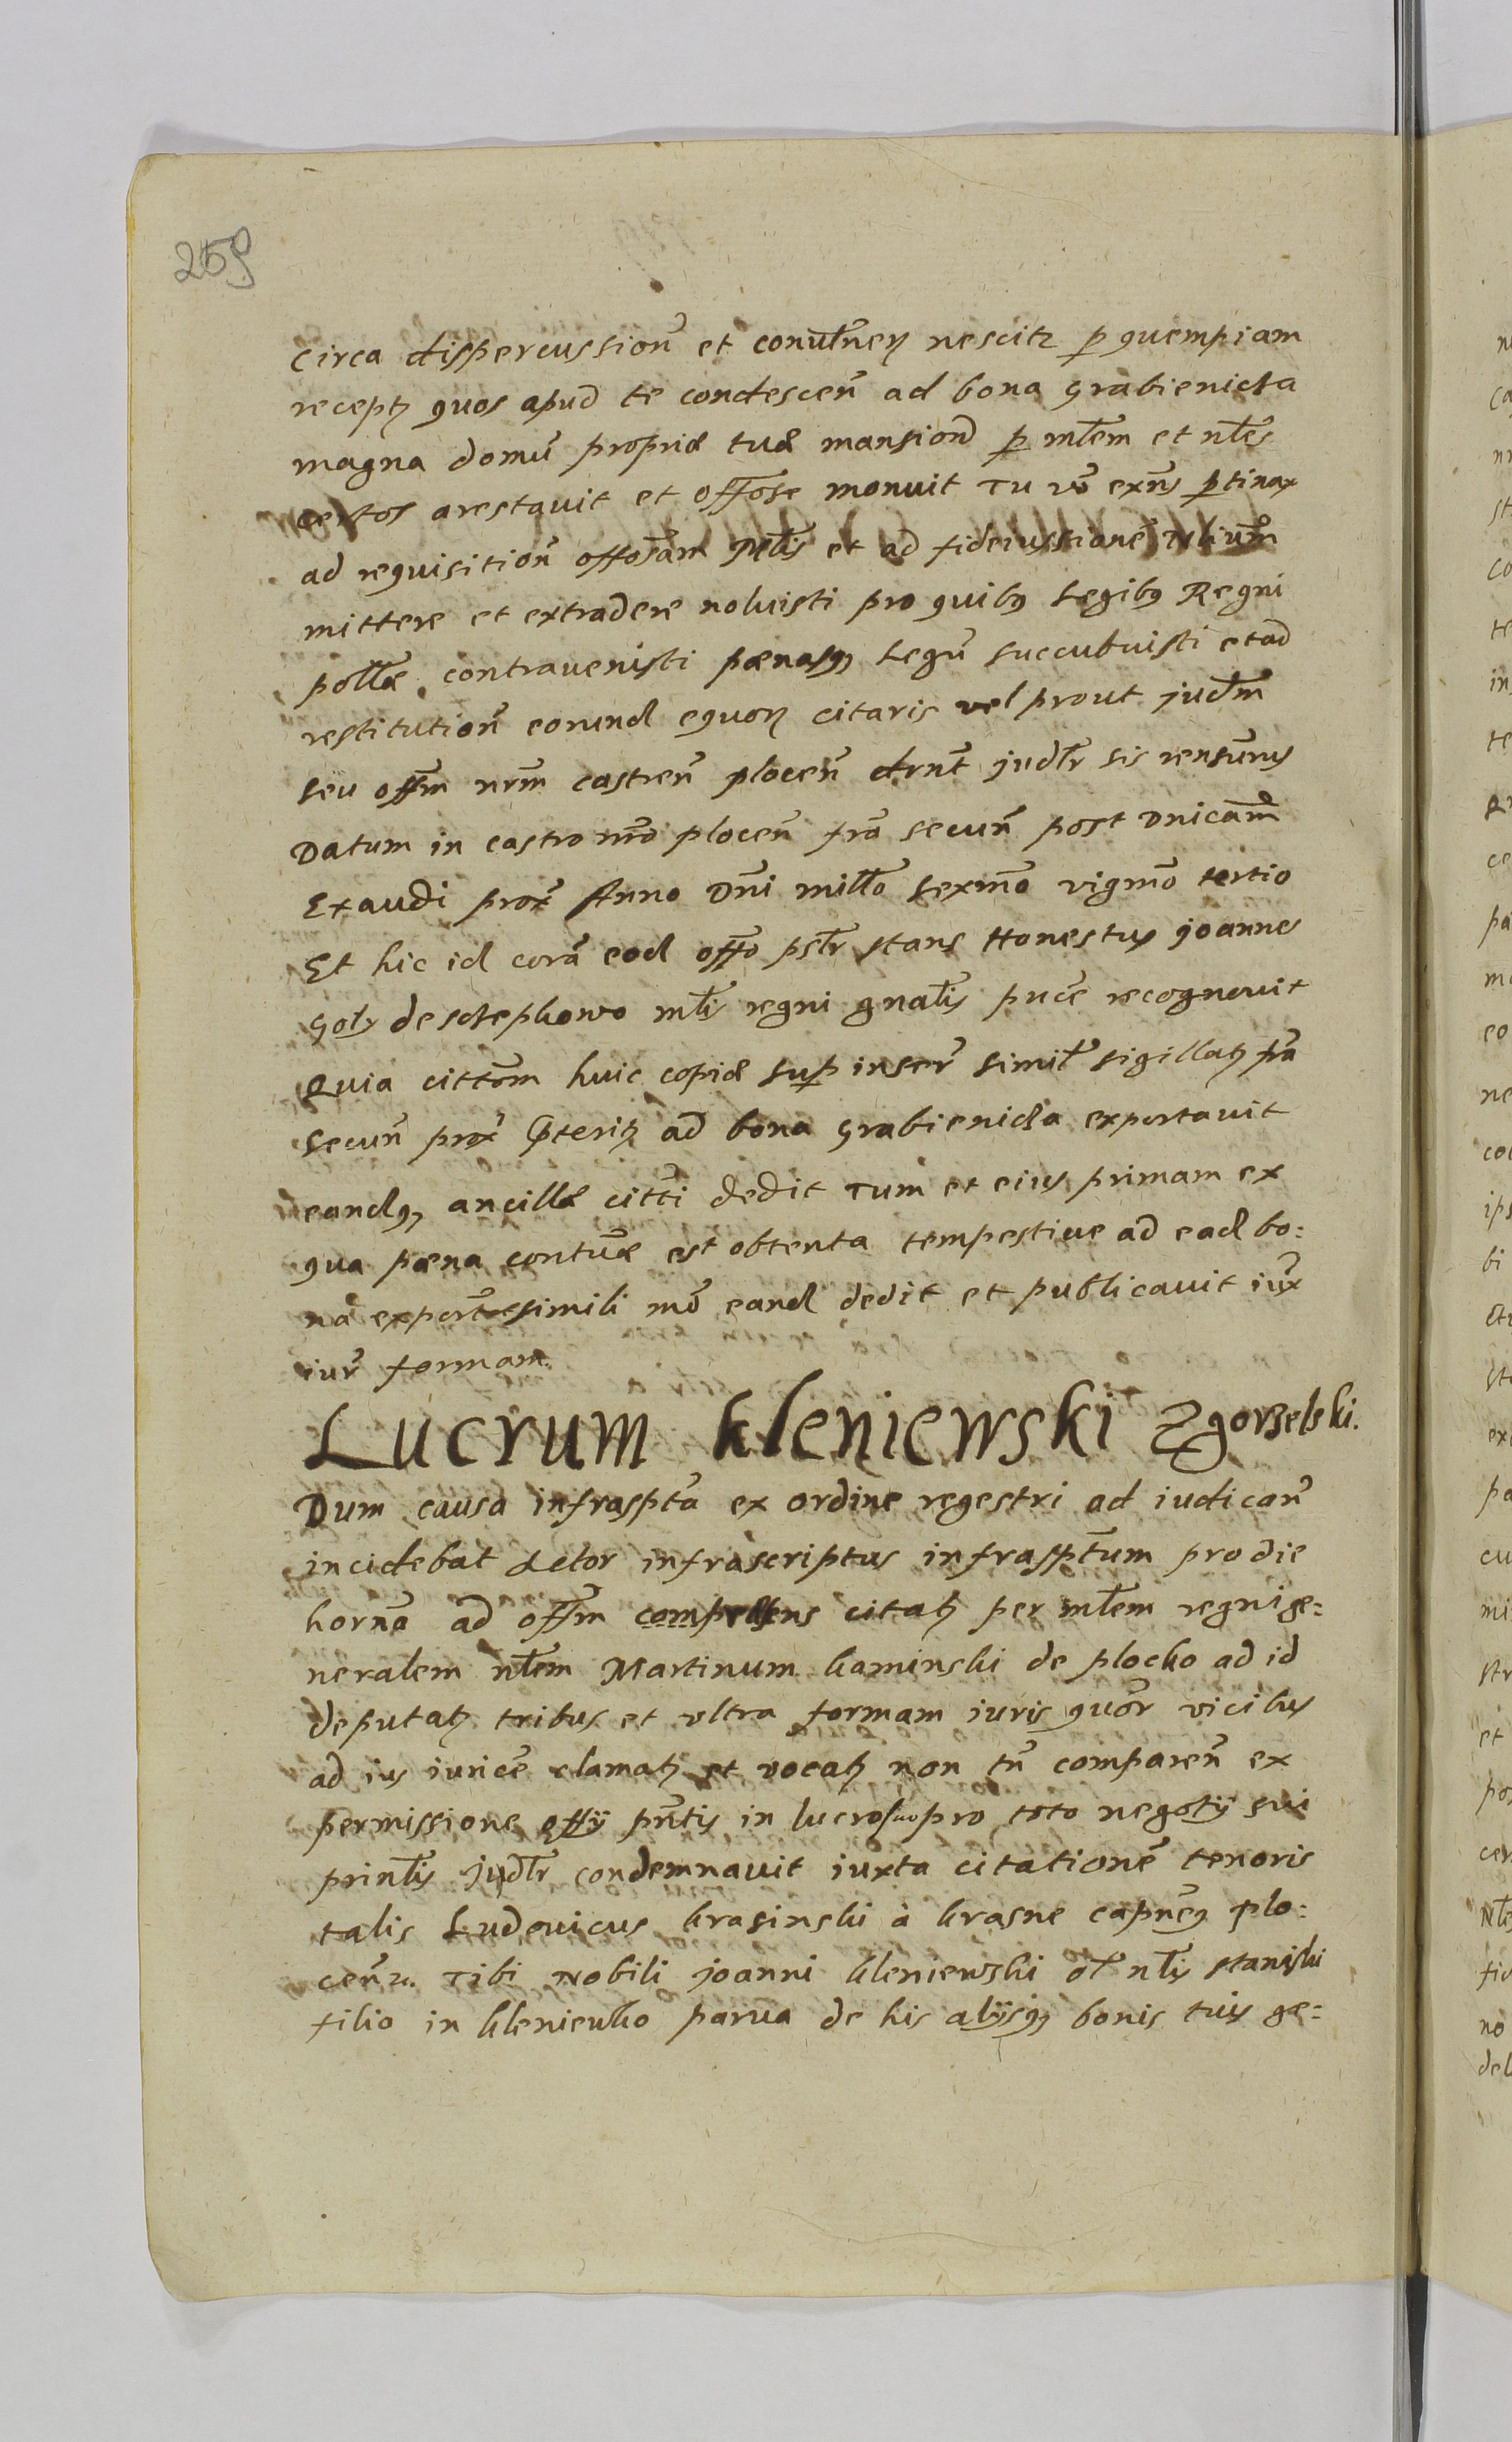 259
circa dispercussion̄ et conulnerꝫ nescitꝫ ꝑ quempiam
receptꝫ quos apud te condescen̄ ad bona Grabienicka
magna domū propriæ tuæ mansion̄ ꝑ ml̄em et nl̄es
certos arestauit et off̄ose monuit Tu vō exn̄s ꝑtinax
ad requisition̄ offos̄am et ad fideiussionē
mittere et extradere noluisti pro quibꝫ Legibꝫ Regni
poll̄æ contrauenisti pœnasqꝫ Legū succubuisti et ad
restitution̄ eorund equorꝫ citaris vel prout jud̄m
seu off̄m nr̄m castren̄ plocen̄ drn̄t jud̄lr sis rensūrus
Datum in castro nr̄o plocen̄ fr̄a secun̄ post Dnicam̄
Exaudi prox̄ Anno Dn̄i mill̄o sexm̄o vigm̄o tertio
Et hic id corā eod off̄o psl̄r stans Honestus joannes
Goly de Sczephowo ml̄is regni gnal̄is pn̄ce recognouit
Quia citt̄om huic copiæ suꝑ inser̄ simil̄ sigillatꝫ fr̄a
secun̄ prox̄ p̄teritꝫ ad bona Grabienicka exportauit
eandqꝫ ancillæ citt̄i dedit Tum et eius primam ex
qua pœna contūæ est obtenta tempestiue ad ead bo:
na export̄ simili mō eand dedit et publicauit iux̄
iur̄ formam.
Lucrum Kleniewski Zgorzelski.
Dum causa infraspt̄a ex ordine regestri ad iudican̄
incidebat Actor infrascriptus infraspt̄um pro die
horn̄a ad off̄m comparens citatꝫ per ml̄em regni ge:
neralem nl̄em Martinum Kaminski de plocko ad id
deputatꝫ tribus et vltra formam iuris quor̄ vicibus
ad ius iuricē clamatꝫ et vocatꝫ non tn̄ comparen̄ ex
permissione offÿ pn̄tis in lucro suo pro toto negotÿ sui
prinl̄is jud̄lr condemnauit iuxta citationē tenoris
talis Ludouicus Krasinski à Krasne capn̄eqꝫ Plo:
cen̄ Tibi Nobili joanni Kleniewski ol̄ nl̄is Stanislai
filio in Klenieuko parua de his alÿsqꝫ bonis tuis ge: